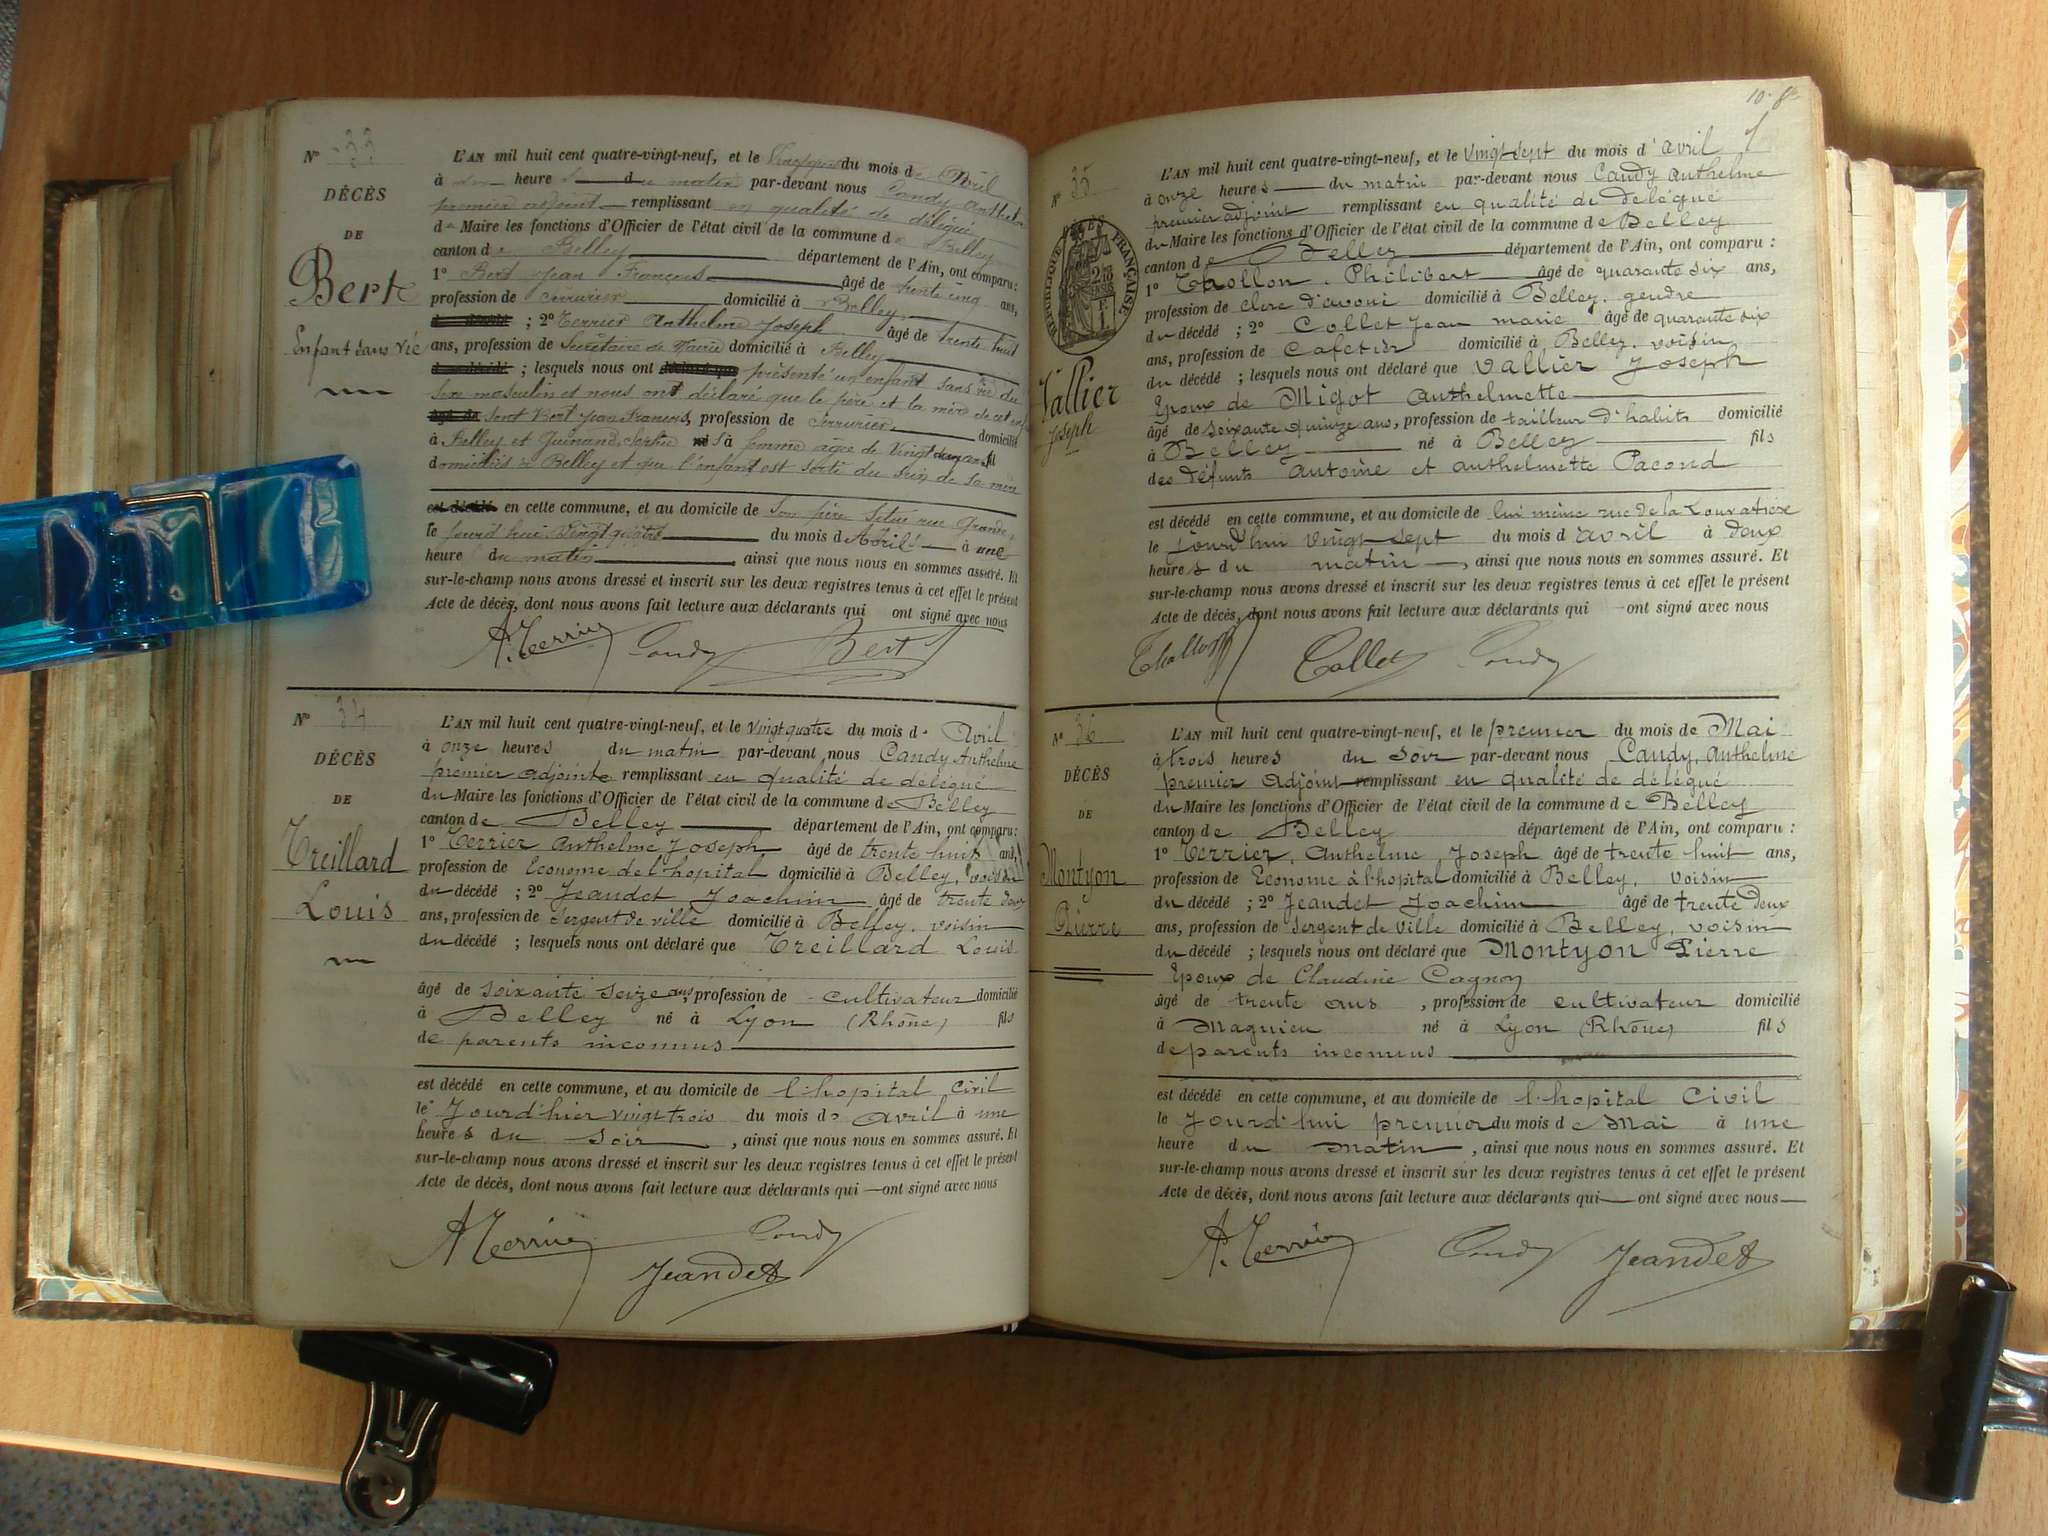 N° 33
DÉCÈS
DE
Bert
Enfant sans vie
L'AN mil huit cent quatre-vingt-neuf, et le du mois de Avril
à heure du matin par-devant nous Candy Anthelme
premier adjoint remplissant en qualité de délégué
de Maire les fonctions d'Officier de l'état civil de la commune de Belley
canton de Belley département de l'Ain, ont comparu :
1° Bert Jean François âgé de trente cinq ans,
profession de Serrurier domicilié à Belley
; 2° Terrier Anthelme Joseph âgé de trente huit
ans, profession de Secrétaire de Mairie domicilié à Belley
; lesquels nous ont présenté un enfant sans vie du
Sexe masculin et nous ont déclaré que le père et la mère de cet
sont Bert Jean François, profession de Serrurier domicilié
à Belley et Sophie Sa femme agée de Vingt ans
domiciliés à Belley et que l'enfant est sorti du sein de sa mère
en cette commune, et au domicile de Son père Situé rue Grande,
le jourd'hui Vingt quatre du mois d Avril à une
heure du matin, ainsi que nous nous en sommes assuré. Et
sur-le-champ nous avons dressé et inscrit sur les deux registres tenus à cet effet le présent
Acte de décès, dont nous avons fait lecture aux déclarants qui ont signé avec nous
A. Terrier Candy Bert
N° 34
DÉCÈS
DE
Treillard
Louis
L'AN mil huit cent quatre-vingt-neuf, et le vingt quatre du mois d' Avril
à onze heures du matin par-devant nous Candy Anthelme
premier adjoint remplissant en qualité de délégué
du Maire les fonctions d'Officier de l'état civil de la commune de Belley
canton de Belley département de l'Ain, ont comparu :
1° Terrier Anthelme Joseph âgé de trente huit ans,
profession de Econome de l'hopital domicilié à Belley, voisin
du décédé ; 2° Jeandet Joachim âgé de trente deux
ans, profession de Sergent de ville domicilié à Belley, voisin
du décédé ; lesquels nous ont déclaré que Treillard Louis
âgé de soixante seize ans, profession de cultivateur domicilié
à Belley né à Lyon (Rhône) fils
de parents inconnus
est décédé en cette commune, et au domicile de l'hopital civil
le Jourd'hier vingt trois du mois d' avril à une
heures du soir, ainsi que nous nous en sommes assuré. Et
sur-le-champ nous avons dressé et inscrit sur les deux registres tenus à cet effet le présent
Acte de décès, dont nous avons fait lecture aux déclarants qui ont signé avec nous
A Terrier Candy
Jeandet
N° 35
RÉPUBLIQUE FRANÇAISE
Vallier
Joseph
L'AN mil huit cent quatre-vingt-neuf, et le vingt sept du mois d'avril
à onze heures du matin par-devant nous Candy Anthelme
premier adjoint remplissant en qualité de délégué
du Maire les fonctions d'Officier de l'état civil de la commune de Belley
canton de Belley département de l'Ain, ont comparu :
1° Thollon, Philibert âgé de quarante six ans,
profession de clerc d'avoué domicilié à Belley, gendre
du décédé ; 2° Collet Jean marie âgé de quarante six
ans, profession de Cafetier domicilié à Belley, voisin
du décédé ; lesquels nous ont déclaré que Vallier Joseph
Epoux de Migot Anthelmette
âgé de soixante quinze ans, profession de tailleur d'habits domicilié
à Belley né à Belley fils
des défunts Antoine et anthelmette Pacoud
est décédé en cette commune, et au domicile de lui même rue de la
le jourd'hui vingt sept du mois d'avril à deux
heures du matin, ainsi que nous nous en sommes assuré. Et
sur-le-champ nous avons dressé et inscrit sur les deux registres tenus à cet effet le présent
Acte de décès, dont nous avons fait lecture aux déclarants qui ont signé avec nous
Thollon Collet Candy
N° 36
DÉCÈS
DE
Montyon
Pierre
L'AN mil huit cent quatre-vingt-neuf, et le premier du mois de Mai
à trois heures du soir par-devant nous Candy, Anthelme
premier adjoint remplissant en qualité de délégué
du Maire les fonctions d'Officier de l'état civil de la commune de Belley
canton de Belley département de l'Ain, ont comparu :
1° Terrier, Anthelme, Joseph âgé de trente huit ans,
profession de Econome à l'hopital domicilié à Belley, voisin
du décédé ; 2° Jeandet Joachim âgé de trente deux
ans, profession de Sergent de Ville domicilié à Belley, voisin
du décédé ; lesquels nous ont déclaré que Montyon Pierre
Epoux de Claudine Cagnon
âgé de trente ans, profession de cultivateur domicilié
à Magnieu né à Lyon (Rhône) fils
de parents inconnus
est décédé en cette commune, et au domicile de l'hopital Civil
le Jourd'hui premier du mois de Mai à une
heure du matin, ainsi que nous nous en sommes assuré. Et
sur-le-champ nous avons dressé et inscrit sur les deux registres tenus à cet effet le présent
Acte de décès, dont nous avons fait lecture aux déclarants qui ont signé avec nous
A. Terrier Candy Jeandet